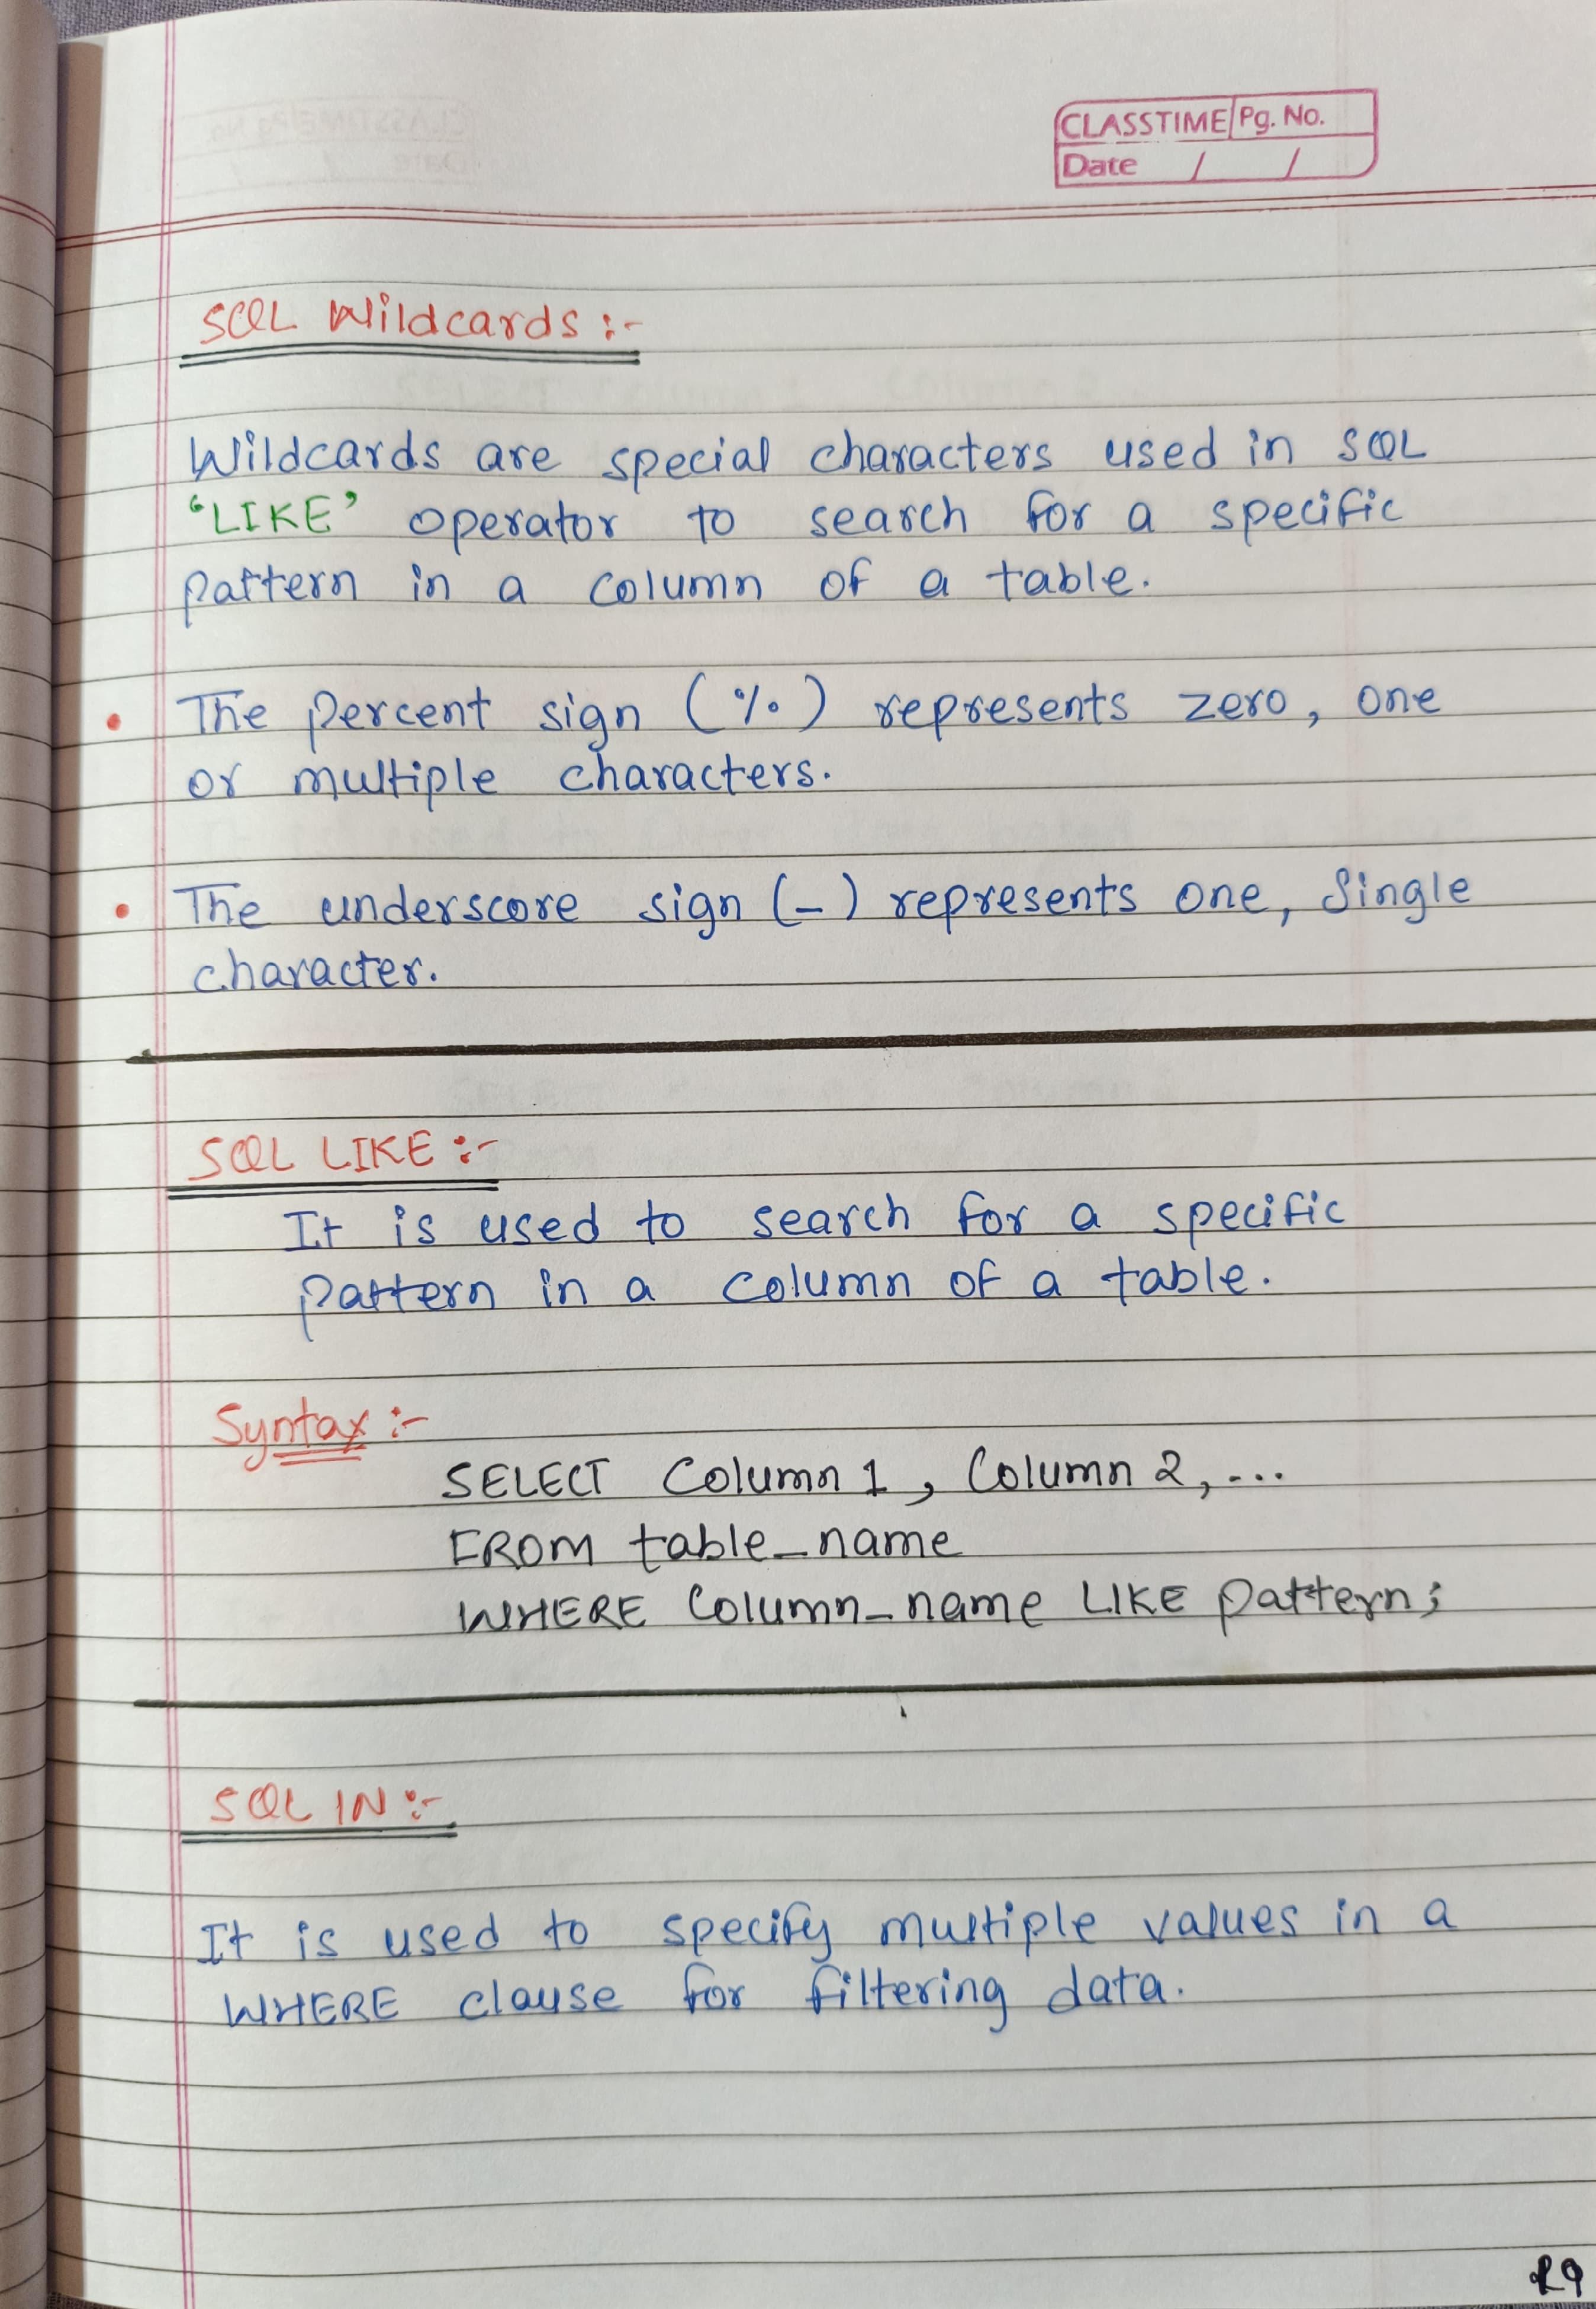 CLASSTIME Pg. No.
Date / /
SQL Wildcards :-
Wildcards are special characters used in SQL
'LIKE' operator to search for a specific
pattern in a column of a table.
• The percent sign (%) represents zero, one
or multiple characters.
• The underscore sign (_) represents one, single
character.
SQL LIKE :-
It is used to search for a specific
pattern in a column of a table.
Syntax :-
SELECT Column 1, Column 2, ...
FROM table_name
WHERE Column_name LIKE pattern;
SQL IN :-
It is used to specify multiple values in a
WHERE clause for filtering data.